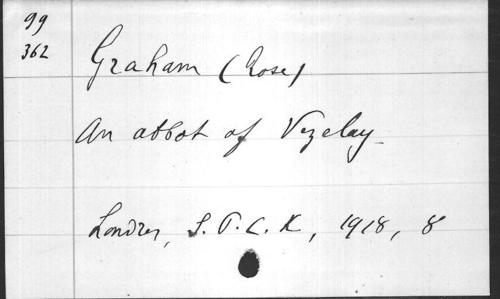 99
362
Graham (Rose)
An abbot of Vezelay
Londres, S.P.C.K, 1918, 8